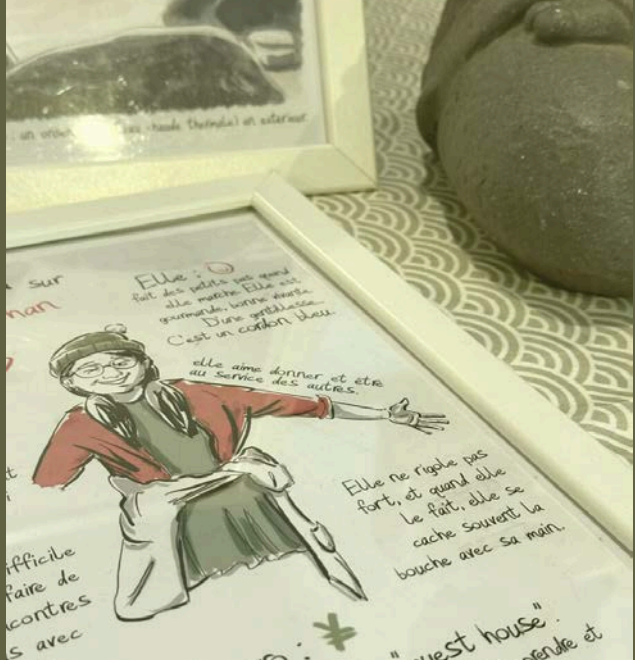 un (eau chaude thermale) en extérieur.
sur
Elle :
fait des petits pas quand
elle marche. Elle est
gourmande, bonne vivante.
D'une gentillesse...
C'est un cordon bleu.
elle aime donner et être
au service des autres.
Elle ne rigole pas
fort, et quand elle
le fait, elle se
cache souvent la
bouche avec sa main.
ifficile
faire de
contres
s avec
"guest house".